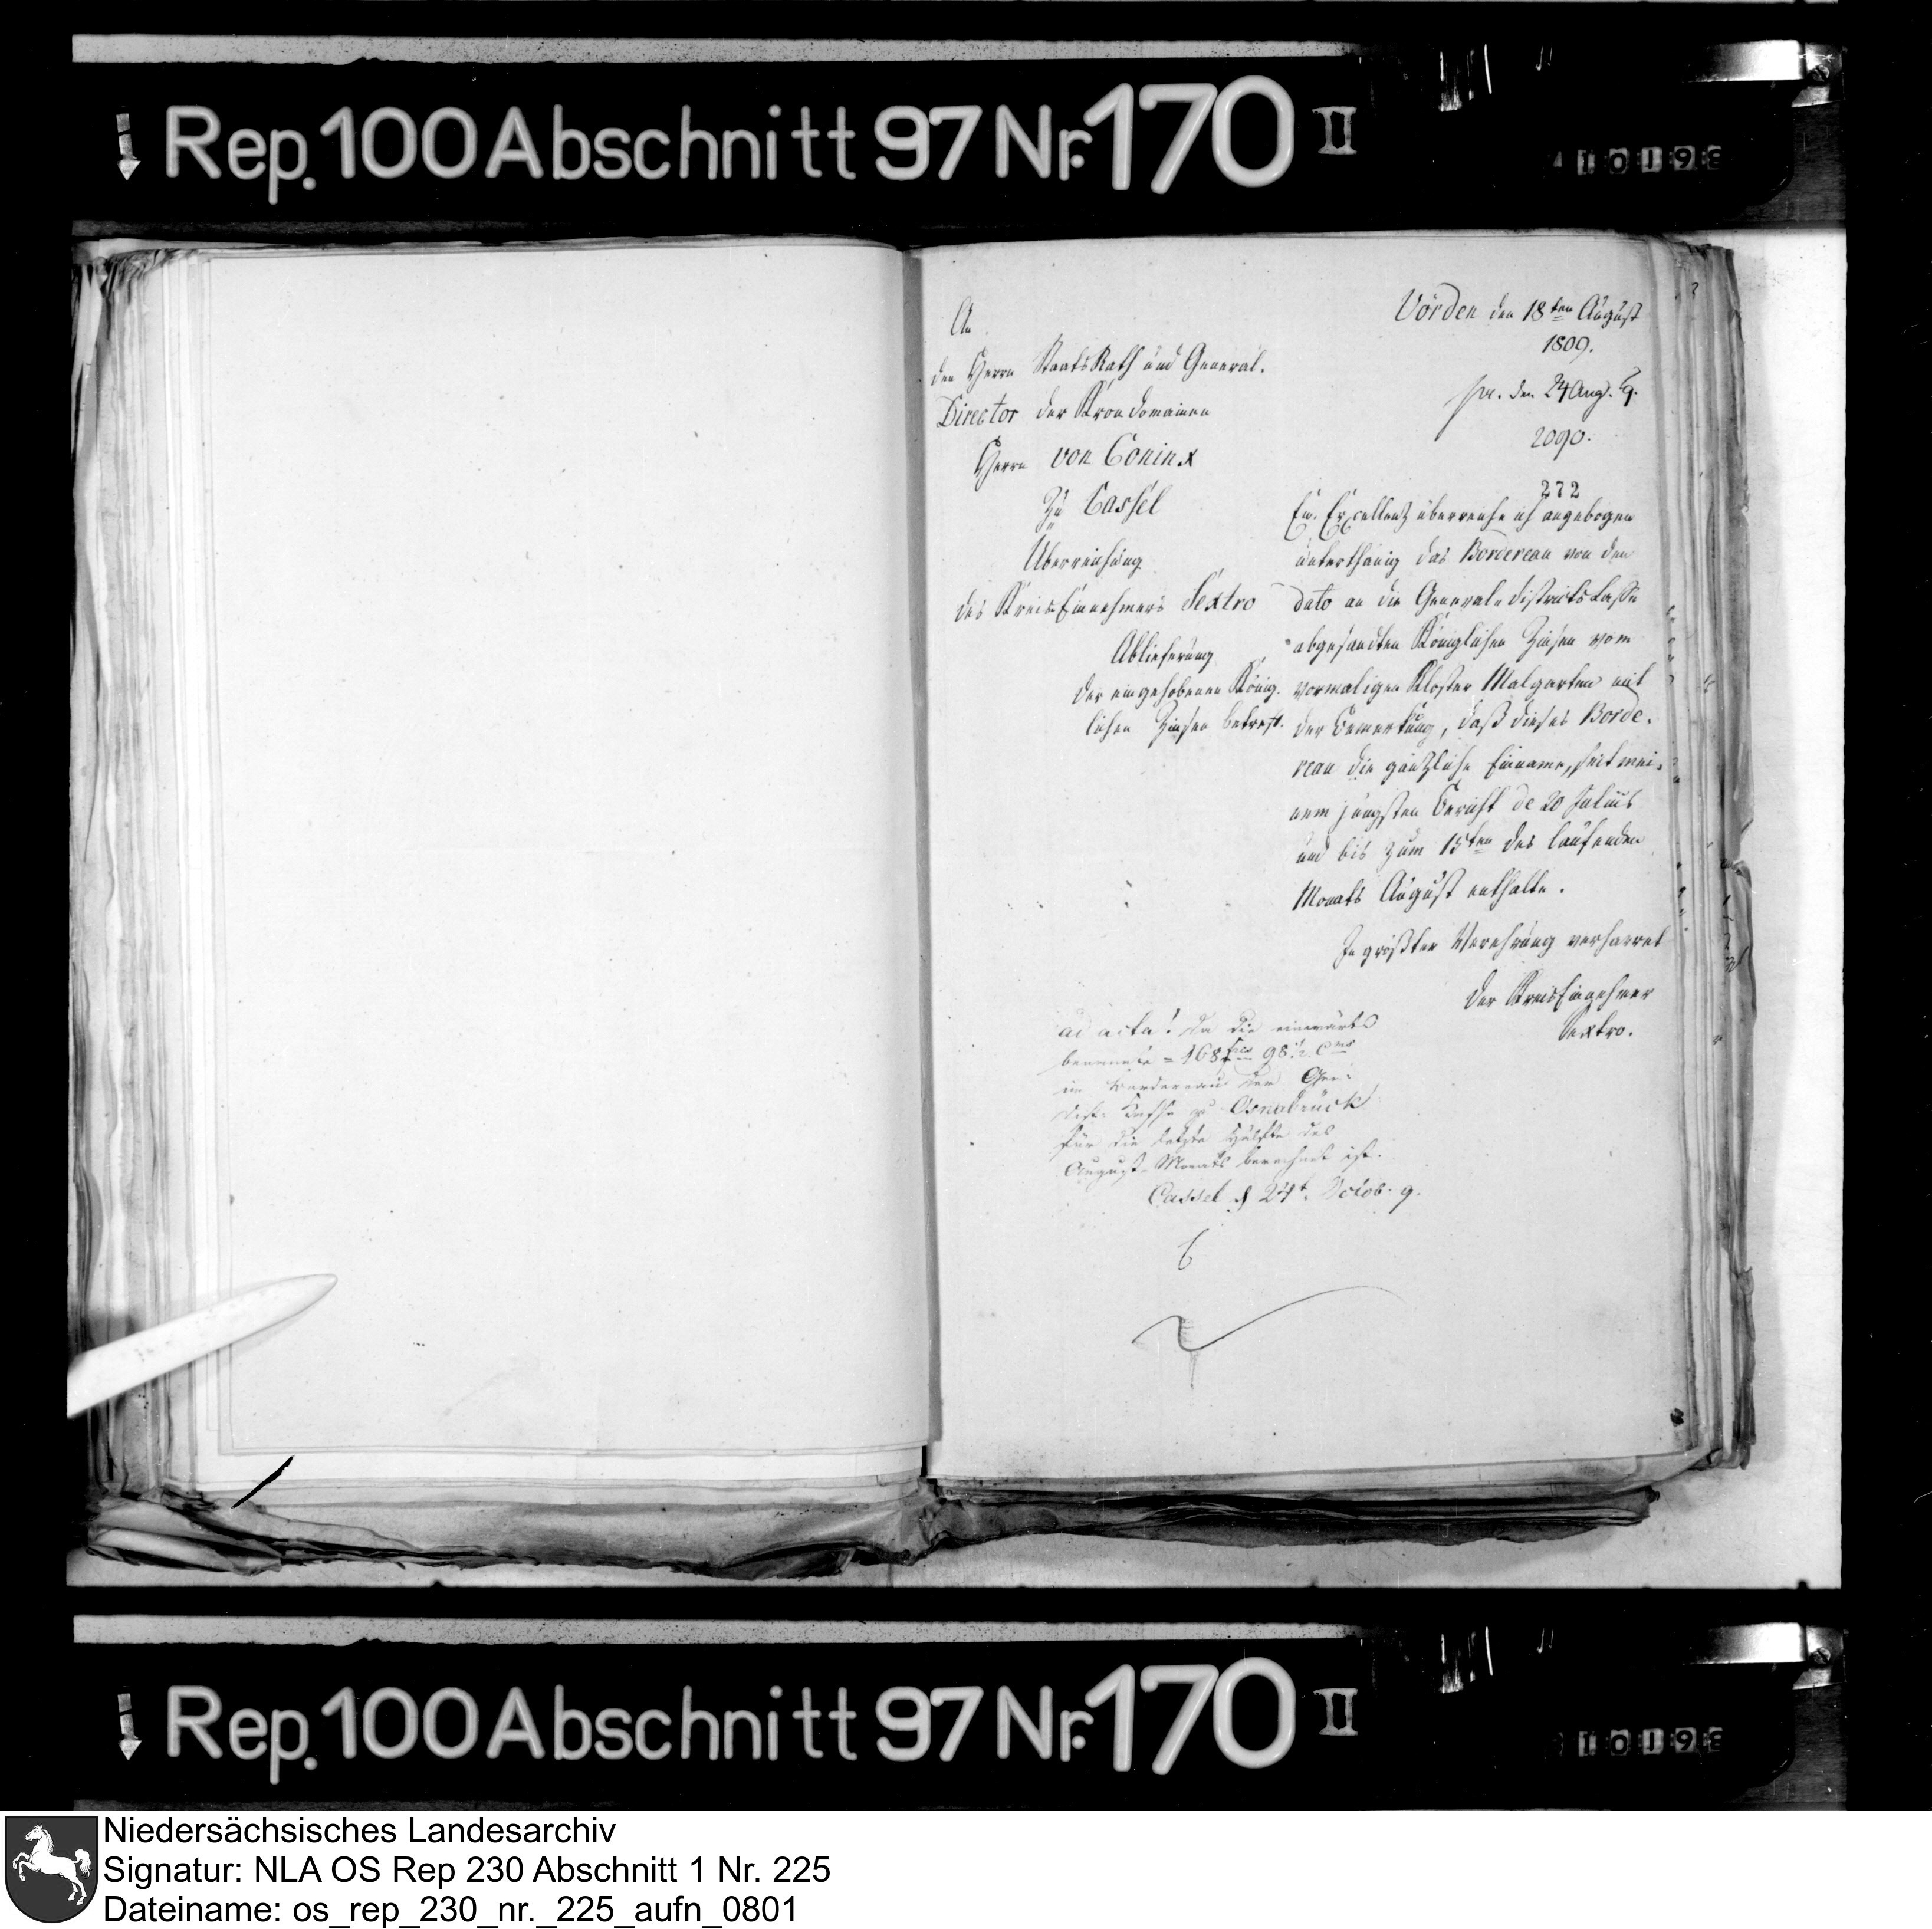 Rep. 100 Abschnitt 97 Nr. 170 II
Vörden den 18ten August
1809.
pr. den 24 Aug. 9.
2090.
An
den Herrn StaatsRath und General-
Director der Krondomainen
Herrn von Coninx
zu Cassel
Überreichung
des KreisEinnehmers Sextro
Ablieferung
der eingehobenen König-
lichen Zinsen betreff.
272
Ew. Excellenz überreiche ich angebogen
unterthänig das Bordereau von den
dato an die General-Districts Casse
abgesandten Königlichen Zinsen vom
vormaligen Kloster Malgarten mit
der Bemerkung, daß dieses Borde-
reau die gäntzliche Einname, seit mei-
nem jüngsten Bericht de 20 Julius
und bis zum 15ten des laufenden
Monats August enthalte.
In größter Verehrung verharret
der KreisEinnehmer
Sextro.
ad acta! Da die
168 frcs 98 1/2 Cms
im Bordereau der Gen:
Dist. Casse zu Osnabrück
für die letzte Hälfte des
August-Monats berechnet ist.
Cassel d 24t. Octob. 9.
Rep. 100 Abschnitt 97 Nr. 170 II
Niedersächsisches Landesarchiv
Signatur: NLA OS Rep 230 Abschnitt 1 Nr. 225
Dateiname: os_rep_230_nr._225_aufn_0801